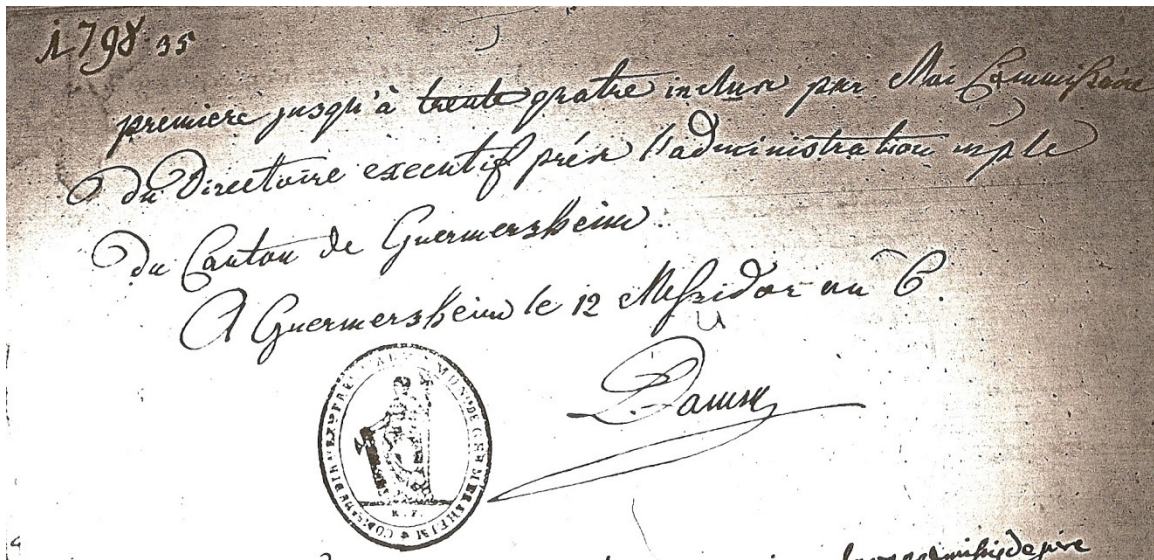 1798 35
premiere jusqu'à trente quatre inclus par Moi Commissaire
du Directoire executif près l'administration mple
du Canton de Guermersheim.
A Guermersheim le 12 Messidor an 6.
R. F.